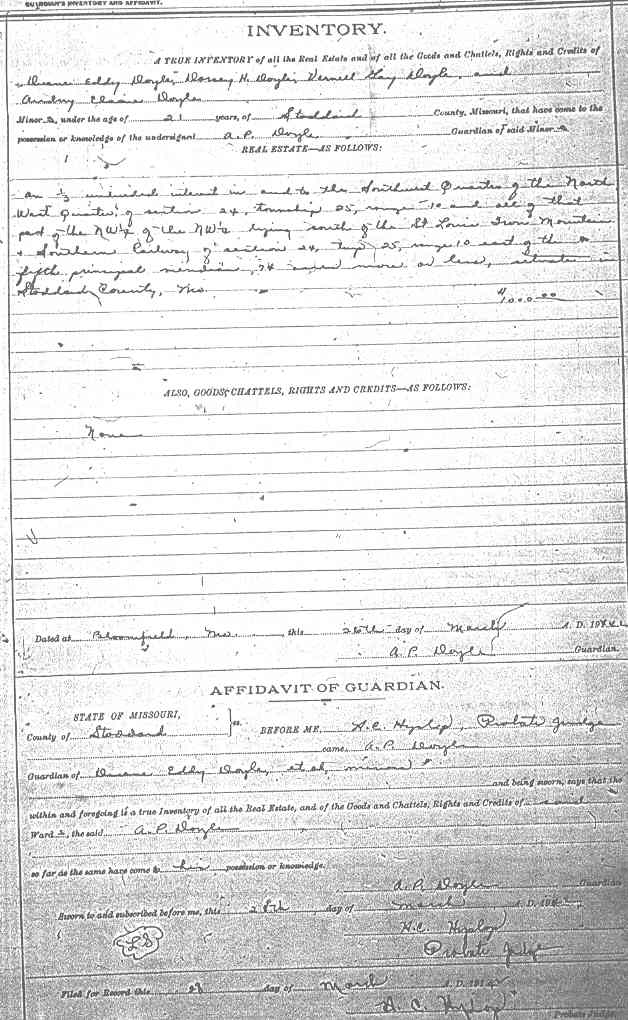 GUARDIAN'S INVENTORY AND AFFIDAVIT.
INVENTORY.
A TRUE INVENTORY of all the Real Estate and of all the Goods and Chattels, Rights and Credits of
Duane Eddy Doyle, Dorsey H. Doyle, Vernell Gay Doyle, and
Doyle
Minors, under the age of 21 years, of Stoddard County, Missouri, that have come to the
possession or knowledge of the undersigned A.P. Doyle Guardian of said Minors
REAL ESTATE—AS FOLLOWS:
an 1/3 undivided interest in and to the Southwest Quarter of the North
West Quarter of section 24, township 25, range 10 and all of that
part of the NW¼ of the NW¼ lying south of the St Louis Iron Mountain
& Southern Railway of section 24, Twp 25, range 10 east of the
fifth principal meridian, 74 acres more or less, situate in
Stoddard County, Mo. $1000.00
ALSO, GOODS, CHATTELS, RIGHTS AND CREDITS—AS FOLLOWS:
None
Dated at Bloomfield, Mo. this 28th day of March A. D. 19
A.P. Doyle Guardian.
AFFIDAVIT OF GUARDIAN.
STATE OF MISSOURI,
County of Stoddard } ss. BEFORE ME, H.C. Hyslop, Probate Judge
came A.P. Doyle
Guardian of Duane Eddy Doyle, et al, minors
and being sworn, says that the
within and foregoing is a true Inventory of all the Real Estate, and of the Goods and Chattels, Rights and Credits of said
Ward s, the said A.P. Doyle
so far as the same have come to his possession or knowledge.
A.P. Doyle Guardian
Sworn to and subscribed before me, this 28th day of March A. D. 19
H.C. Hyslop
LS Probate Judge
Filed for Record this 28 day of March A. D. 19
H. C. Hyslop
Probate Judge.